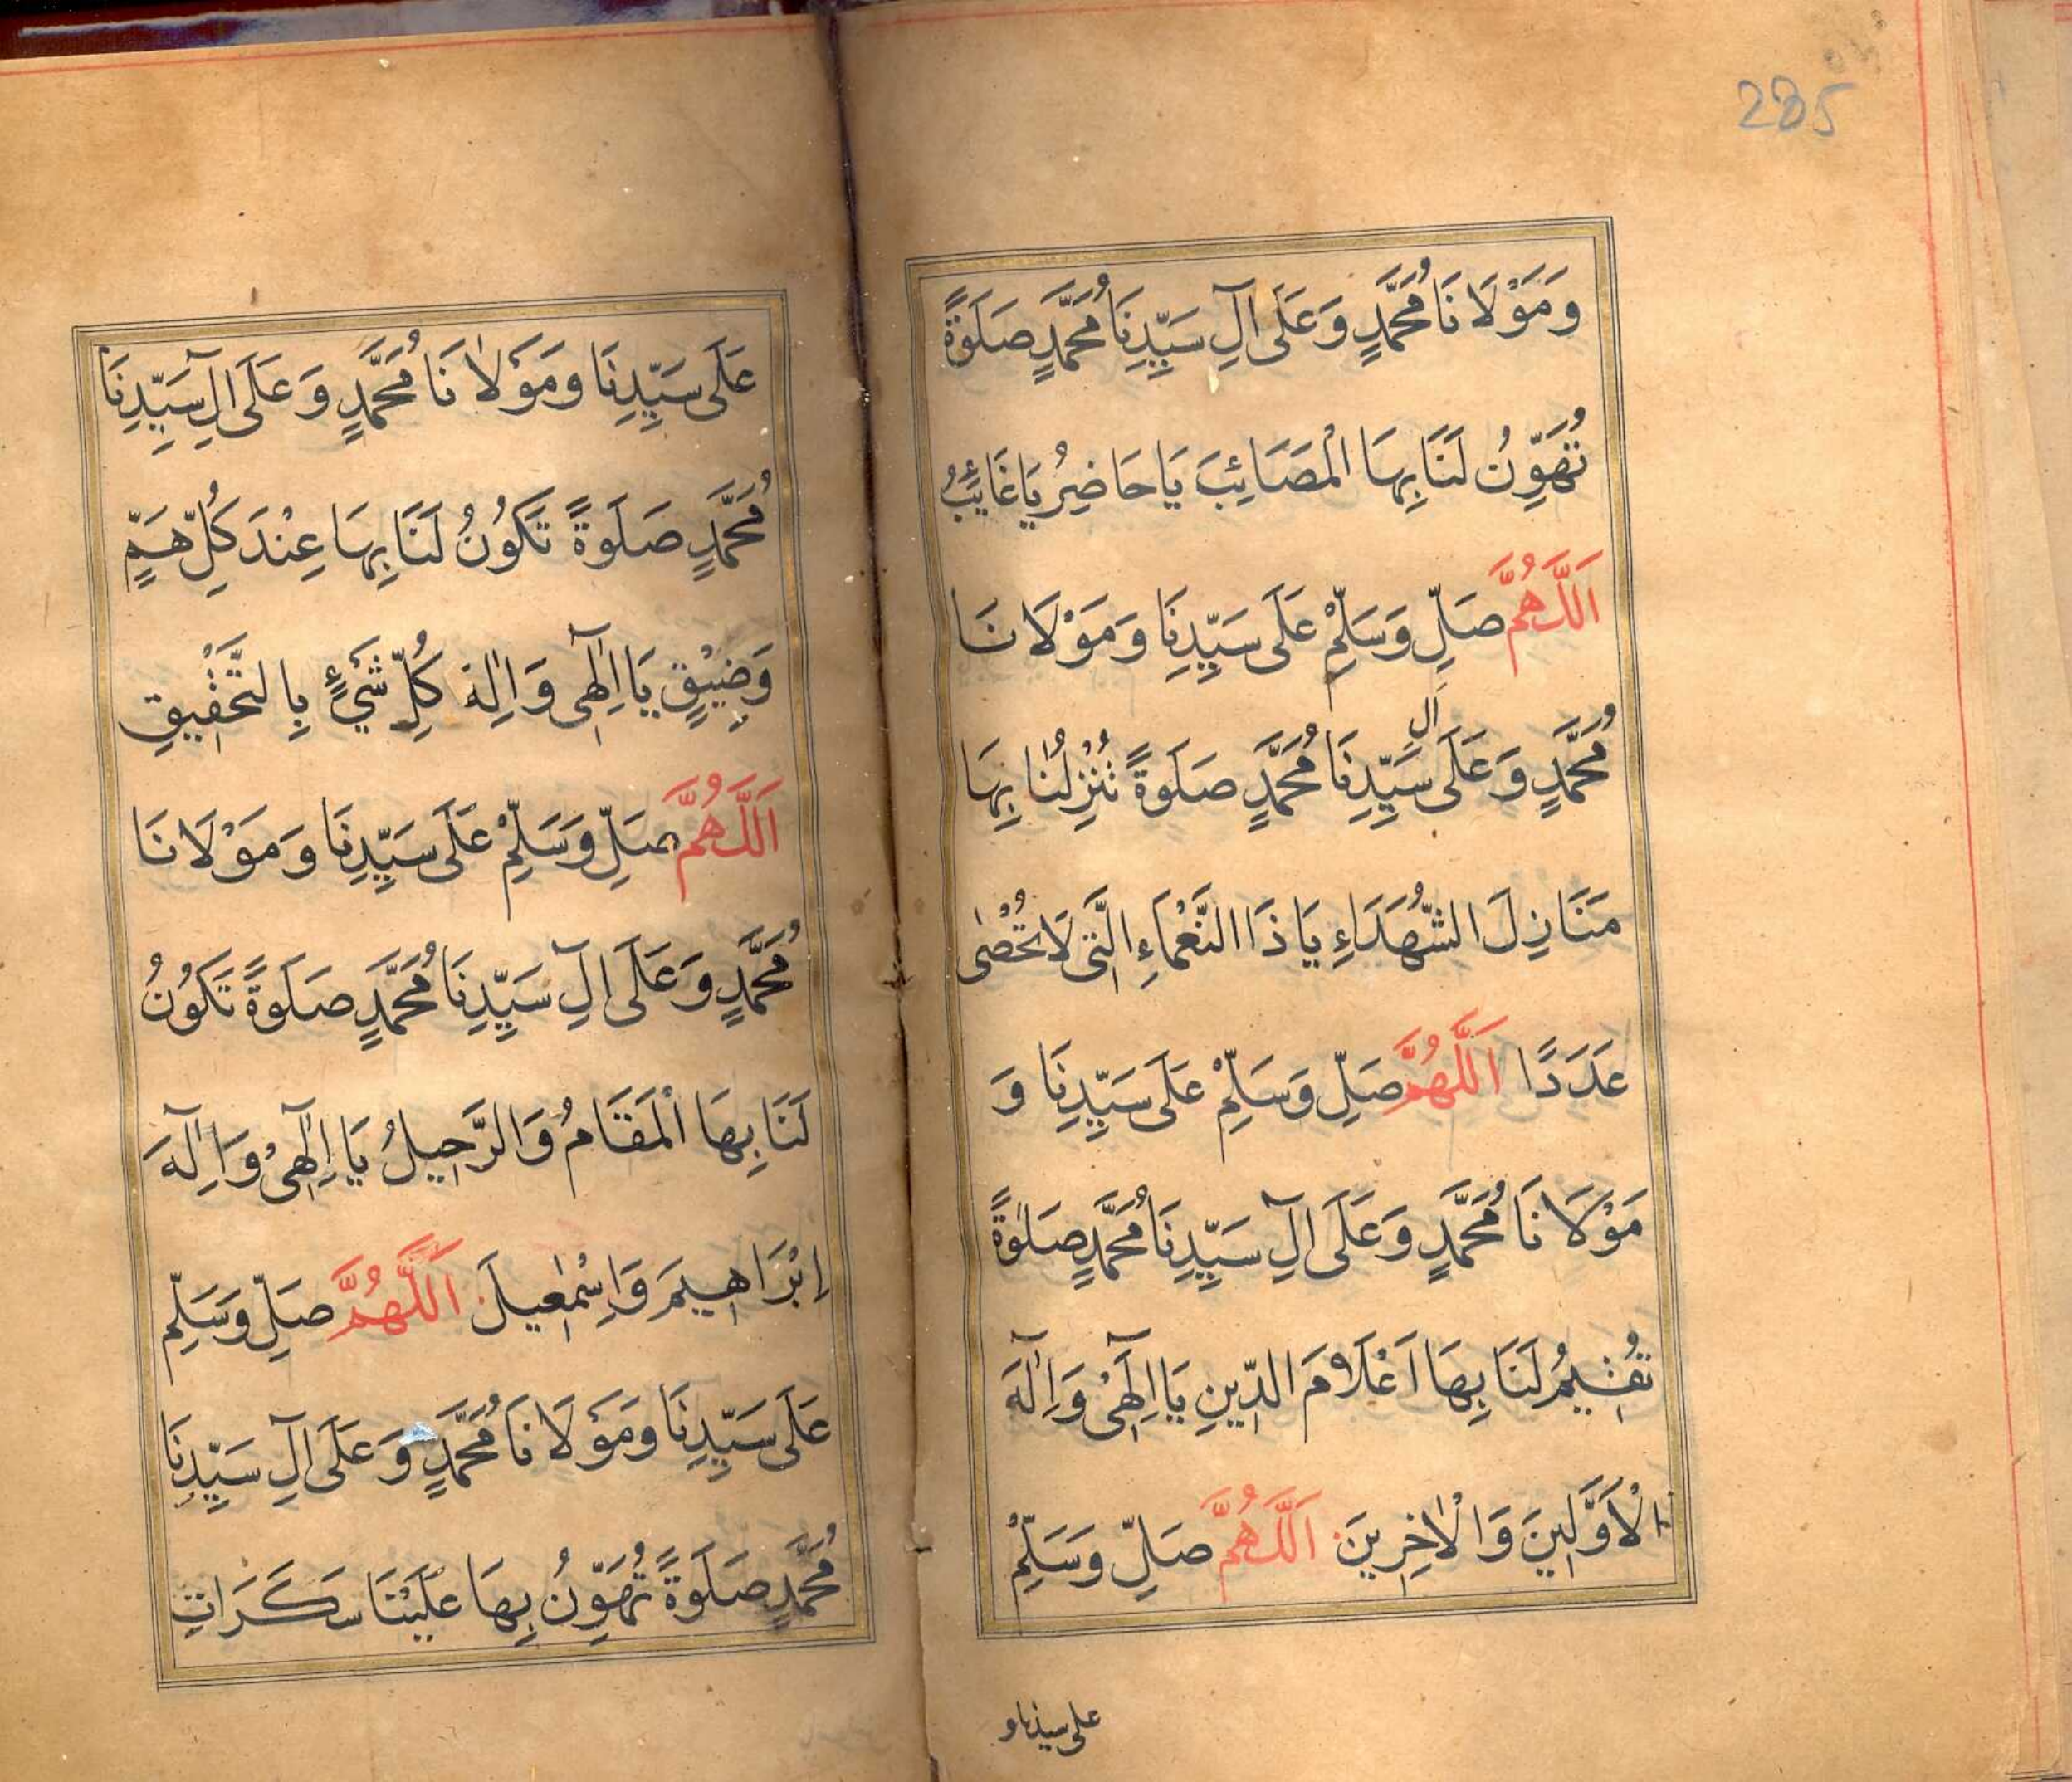 285
وَمَوْلَانَا مُحَمَّدٍ وَعَلَى اٰلِ سَيِّدِنَا مُحَمَّدٍ صَلٰوةً
تُهَوِّنُ لَنَا بِهَا الْمَصَائِبَ يَا حَاضِرُ يَا غَائِبُ
اَللّٰهُمَّ صَلِّ وَسَلِّمْ عَلَى سَيِّدِنَا وَمَوْلَانَا
مُحَمَّدٍ وَعَلَى اٰلِ سَيِّدِنَا مُحَمَّدٍ صَلٰوةً تُنْزِلُنَا بِهَا
مَنَازِلَ الشُّهَدَاءِ يَا ذَا النَّعْمَاءِ الَّتِى لَا تُحْصٰى
عَدَدًا اَللّٰهُمَّ صَلِّ وَسَلِّمْ عَلَى سَيِّدِنَا وَ
مَوْلَانَا مُحَمَّدٍ وَعَلَى اٰلِ سَيِّدِنَا مُحَمَّدٍ صَلٰوةً
تُقِيْمُ لَنَا بِهَا اَعْلَامَ الدِّينِ يَا اِلٰهِىْ وَاِلٰهَ
الْاَوَّلِينَ وَالْاٰخِرِينَ اَللّٰهُمَّ صَلِّ وَسَلِّمْ
على سيدنا و
عَلَى سَيِّدِنَا وَمَوْلَانَا مُحَمَّدٍ وَعَلَى اٰلِ سَيِّدِنَا
مُحَمَّدٍ صَلٰوةً تَكُونُ لَنَا بِهَا عِنْدَ كُلِّ هَمٍّ
وَضِيْقٍ يَا اِلٰهِى وَاِلٰهَ كُلِّ شَيْءٍ بِالتَّحْقِيقِ
اَللّٰهُمَّ صَلِّ وَسَلِّمْ عَلَى سَيِّدِنَا وَمَوْلَانَا
مُحَمَّدٍ وَعَلَى اٰلِ سَيِّدِنَا مُحَمَّدٍ صَلٰوةً تَكُونُ
لَنَا بِهَا الْمَقَامُ وَالرَّحِيلُ يَا اِلٰهِىْ وَاِلٰهَ
اِبْرَاهِيمَ وَاِسْمٰعِيلَ اَللّٰهُمَّ صَلِّ وَسَلِّمْ
عَلَى سَيِّدِنَا وَمَوْلَانَا مُحَمَّدٍ وَعَلَى اٰلِ سَيِّدِنَا
مُحَمَّدٍ صَلٰوةً تُهَوِّنُ بِهَا عَلَيْنَا سَكَرَاتِ